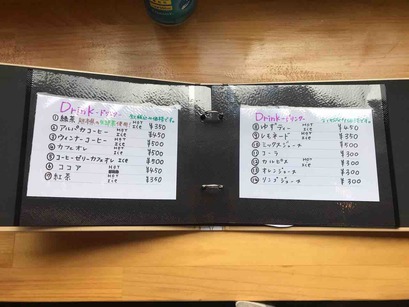 Drink-ドリンク-
①緑茶 HOT ICE ¥350
②アルパカコーヒー HOT ICE ¥450
③ウィンナーコーヒー HOT ICE ¥500
④カフェオレ HOT ICE ¥500
⑤コーヒーゼリーカフェオレ ICE ¥500
⑥ココア HOT ¥450
⑦紅茶 HOT ICE ¥350
Drink-ドリンク-
⑧ゆずティー HOT ICE ¥450
⑨レモネード HOT ICE ¥350
⑩ミックスジュース ¥500
⑪コーラ ¥300
⑫カルピス HOT ICE ¥300
⑬オレンジジュース ¥300
⑭リンゴジュース ¥300